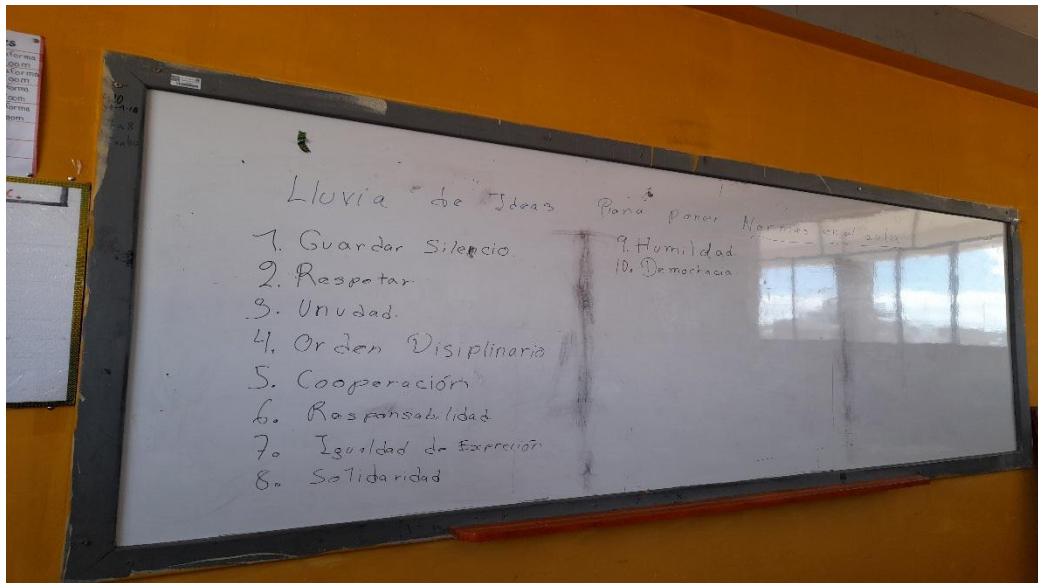 Lluvia de Ideas Para poner Normas en el aula
1. Guardar Silencio
2. Respetar
3. Unudad.
4. Orden Disiplinario
5. Cooperación
6. Responsabilidad
7. Igualdad de Expreción
8. Solidaridad
9. Humildad
10. Democracia